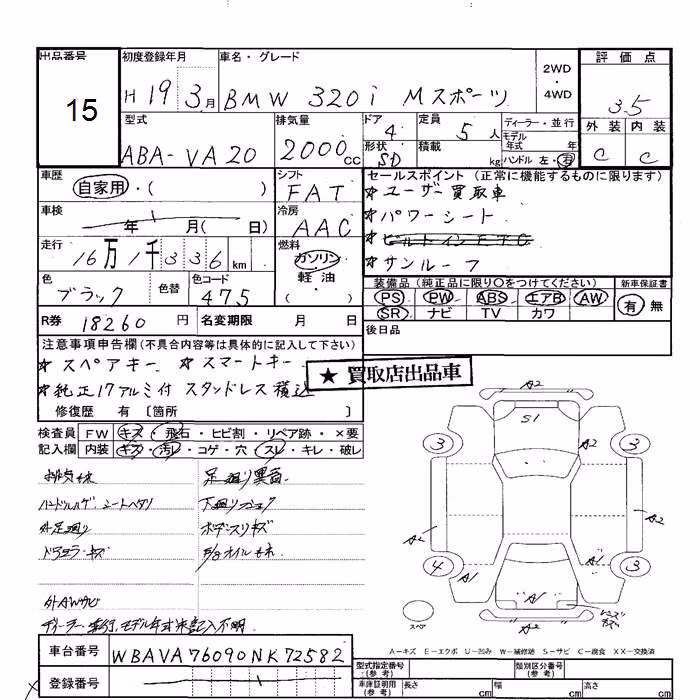 出品番号 初度登録年月 車名・グレード 2WD・4WD 評価点
15 H19 3月 BMW 320i Mスポーツ 3.5
型式 排気量 ドア 4 定員 5人 ディーラー・並行 外装 内装
モデル年式 年
ABA-VA20 2000cc 形状 SD 積載 kg ハンドル 左・右 C C
車歴 自家用・( ) シフト FAT セールスポイント (正常に機能するものに限ります)
★ユーザー買取車
車検 年 月( 日) 冷房 AAC ★パワーシート
★ビルトインETC
走行 16万1千336km 燃料 ガソリン 軽油・ ★サンルーフ
色 ブラック 色替 色コード 475 装備品 (純正品に限り〇をつけてください) 新車保証書
PS PW ABS エアB AW 有 無
SR ナビ TV カワ
R券 18260円 名変期限 月 日 後日品
注意事項申告欄 (不具合内容等は具体的に記入して下さい)
★スペアキー ★スマートキー
★純正17アルミ付 スタッドレス積込
★買取店出品車
修復歴 有 〔箇所 〕
検査員 FW キズ・飛石・ヒビ割・リペア跡・×要
記入欄 内装 キズ・汚レ・コゲ・穴・スレ・キレ・破レ
足廻り異音
ハンドルハゲ、シートヘタリ
外足廻り
ボデースリキズ
ドラヨラ・キズ
外AWサビ
ディーラー・並行、モデル年式未記入不明
A2
S1
3 A2 3
A2 A2
4 A1 A1 A1 3
スペ
A2
A-キズ E-エクボ U-凹み W-補修跡 S-サビ C-腐食 XX-交換済
車台番号 WBAVA76090NK72582 型式指定番号(参考) 類別区分番号(参考)
登録番号 車庫証明用(参考) 長さ cm 幅 cm 高さ cm